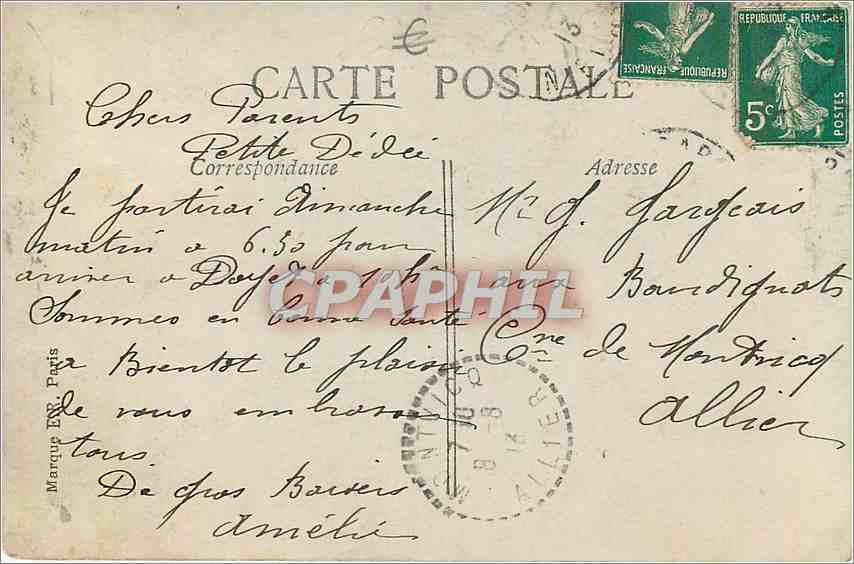 CARTE POSTALE
REPUBLIQUE FRANÇAISE
REPUBLIQUE FRANÇAISE
5c
POSTES
Chers Parents
Petite Dédée
Correspondance
Je partirai dimanche
matin a 6.50 pour
arriver a Doyet a 10h
Sommes en bonne santé
a Bientot le plaisir
de vous embrasser
tous
De gros Baisers
Amélie
Adresse
Mr G. Gargeais
aux Baudignats
Cne de Montvicq
Allier
MONTVICQ
7 10
8 -8
13
ALLIER
Marque E.R. Paris
CPAPHIL